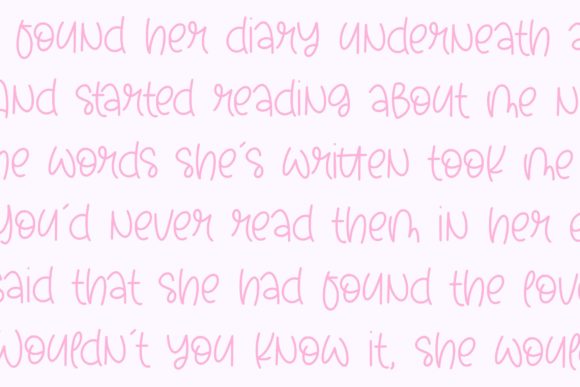 found her diary underneath a
And started reading about me n
he words she´s written took me
you´d never read them in her e
said that she had found the love
wouldn´t you know it, she would